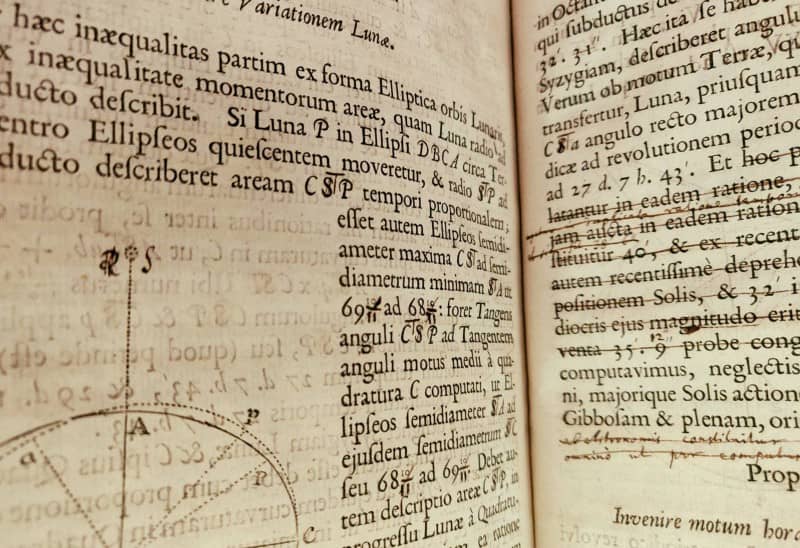 Variationem Lunæ.
hæc inæqualitas partim ex forma Elliptica orbis Lunaris,
inæqualitate momentorum areæ, quam Luna radio ad
ducto deſcribit. Si Luna P in Ellipſi DBCA circa Ter-
entro Ellipſeos quieſcentem moveretur, & radio TP ad
ducto deſcriberet aream CTP tempori proportionalem;
eſſet autem Ellipſeos ſemidi-
ameter maxima CT ad ſemi-
diametrum minimam TA ut
69 ad 68: foret Tangens
anguli CTP ad Tangentem
anguli motus medii à qua-
dratura C computati, ut El-
lipſeos ſemidiameter TA ad
ejuſdem ſemidiametrum TC
ſeu 68 ad 69. Debet au-
tem deſcriptio areæ CTP, in
progreſſu Lunæ à Quadratu-
ea ratione
S
A
P
a
C
in Octan
qui ſubductus de
32'. 31''. Hæc ita ſe habe
Syzygiam, deſcriberet angulu
Verum ob motum Terræ, qu
transfertur, Luna, priuſquam
CTa angulo recto majorem
dicæ ad revolutionem period
ad 27 d. 7 h. 43'. Et hoc p
latantur in eadem ratione,
jam aucta in eadem ration
ſtituitur 40', & ex recent
autem recentiſſimè depreh
poſitionem Solis, & 32' i
diocris ejus magnitudo erit
venta 35'. 9'' probe cong
computavimus, neglectis
ni, majorique Solis action
Gibboſam & plenam, ori
ab aſtronomis conſtituitur
Prop
Invenire motum hora